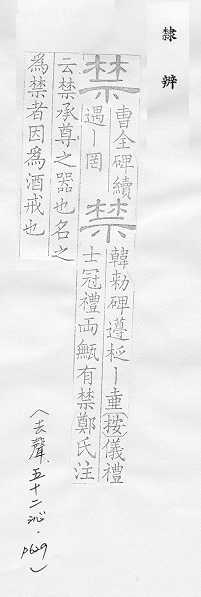 隸辨
禁
曹全碑續
遇丨罔
禁
韓勑碑籩柉丨壷(按)儀禮
士冠禮両甒有禁鄭氏注
云禁承尊之器也名之
爲禁者因爲酒戒也
(去聲.五十二沁.p629)